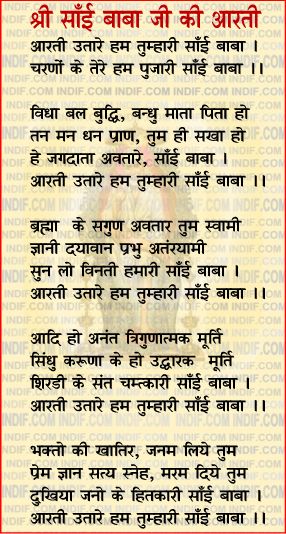 श्री साँई बाबा जी की आरती
आरती उतारे हम तुम्हारी साँई बाबा ।
चरणों के तेरे हम पुजारी साँई बाबा ।।
विधा बल बुद्धि, बन्धु माता पिता हो
तन मन धन प्राण, तुम ही सखा हो
हे जगदाता अवतारे, साँई बाबा ।
आरती उतारे हम तुम्हारी साँई बाबा ।।
ब्रह्मा के सगुण अवतार तुम स्वामी
ज्ञानी दयावान प्रभु अतंरयामी
सुन लो विनती हमारी साँई बाबा ।
आरती उतारे हम तुम्हारी साँई बाबा ।।
आदि हो अनंत त्रिगुणात्मक मूर्ति
सिंधु करूणा के हो उद्धारक मूर्ति
शिरडी के संत चमत्कारी साँई बाबा ।
आरती उतारे हम तुम्हारी साँई बाबा ।।
भक्तो की खातिर, जनम लिये तुम
प्रेम ज्ञान सत्य स्नेह, मरम दिये तुम
दुखिया जनो के हितकारी साँई बाबा ।
आरती उतारे हम तुम्हारी साँई बाबा ।।